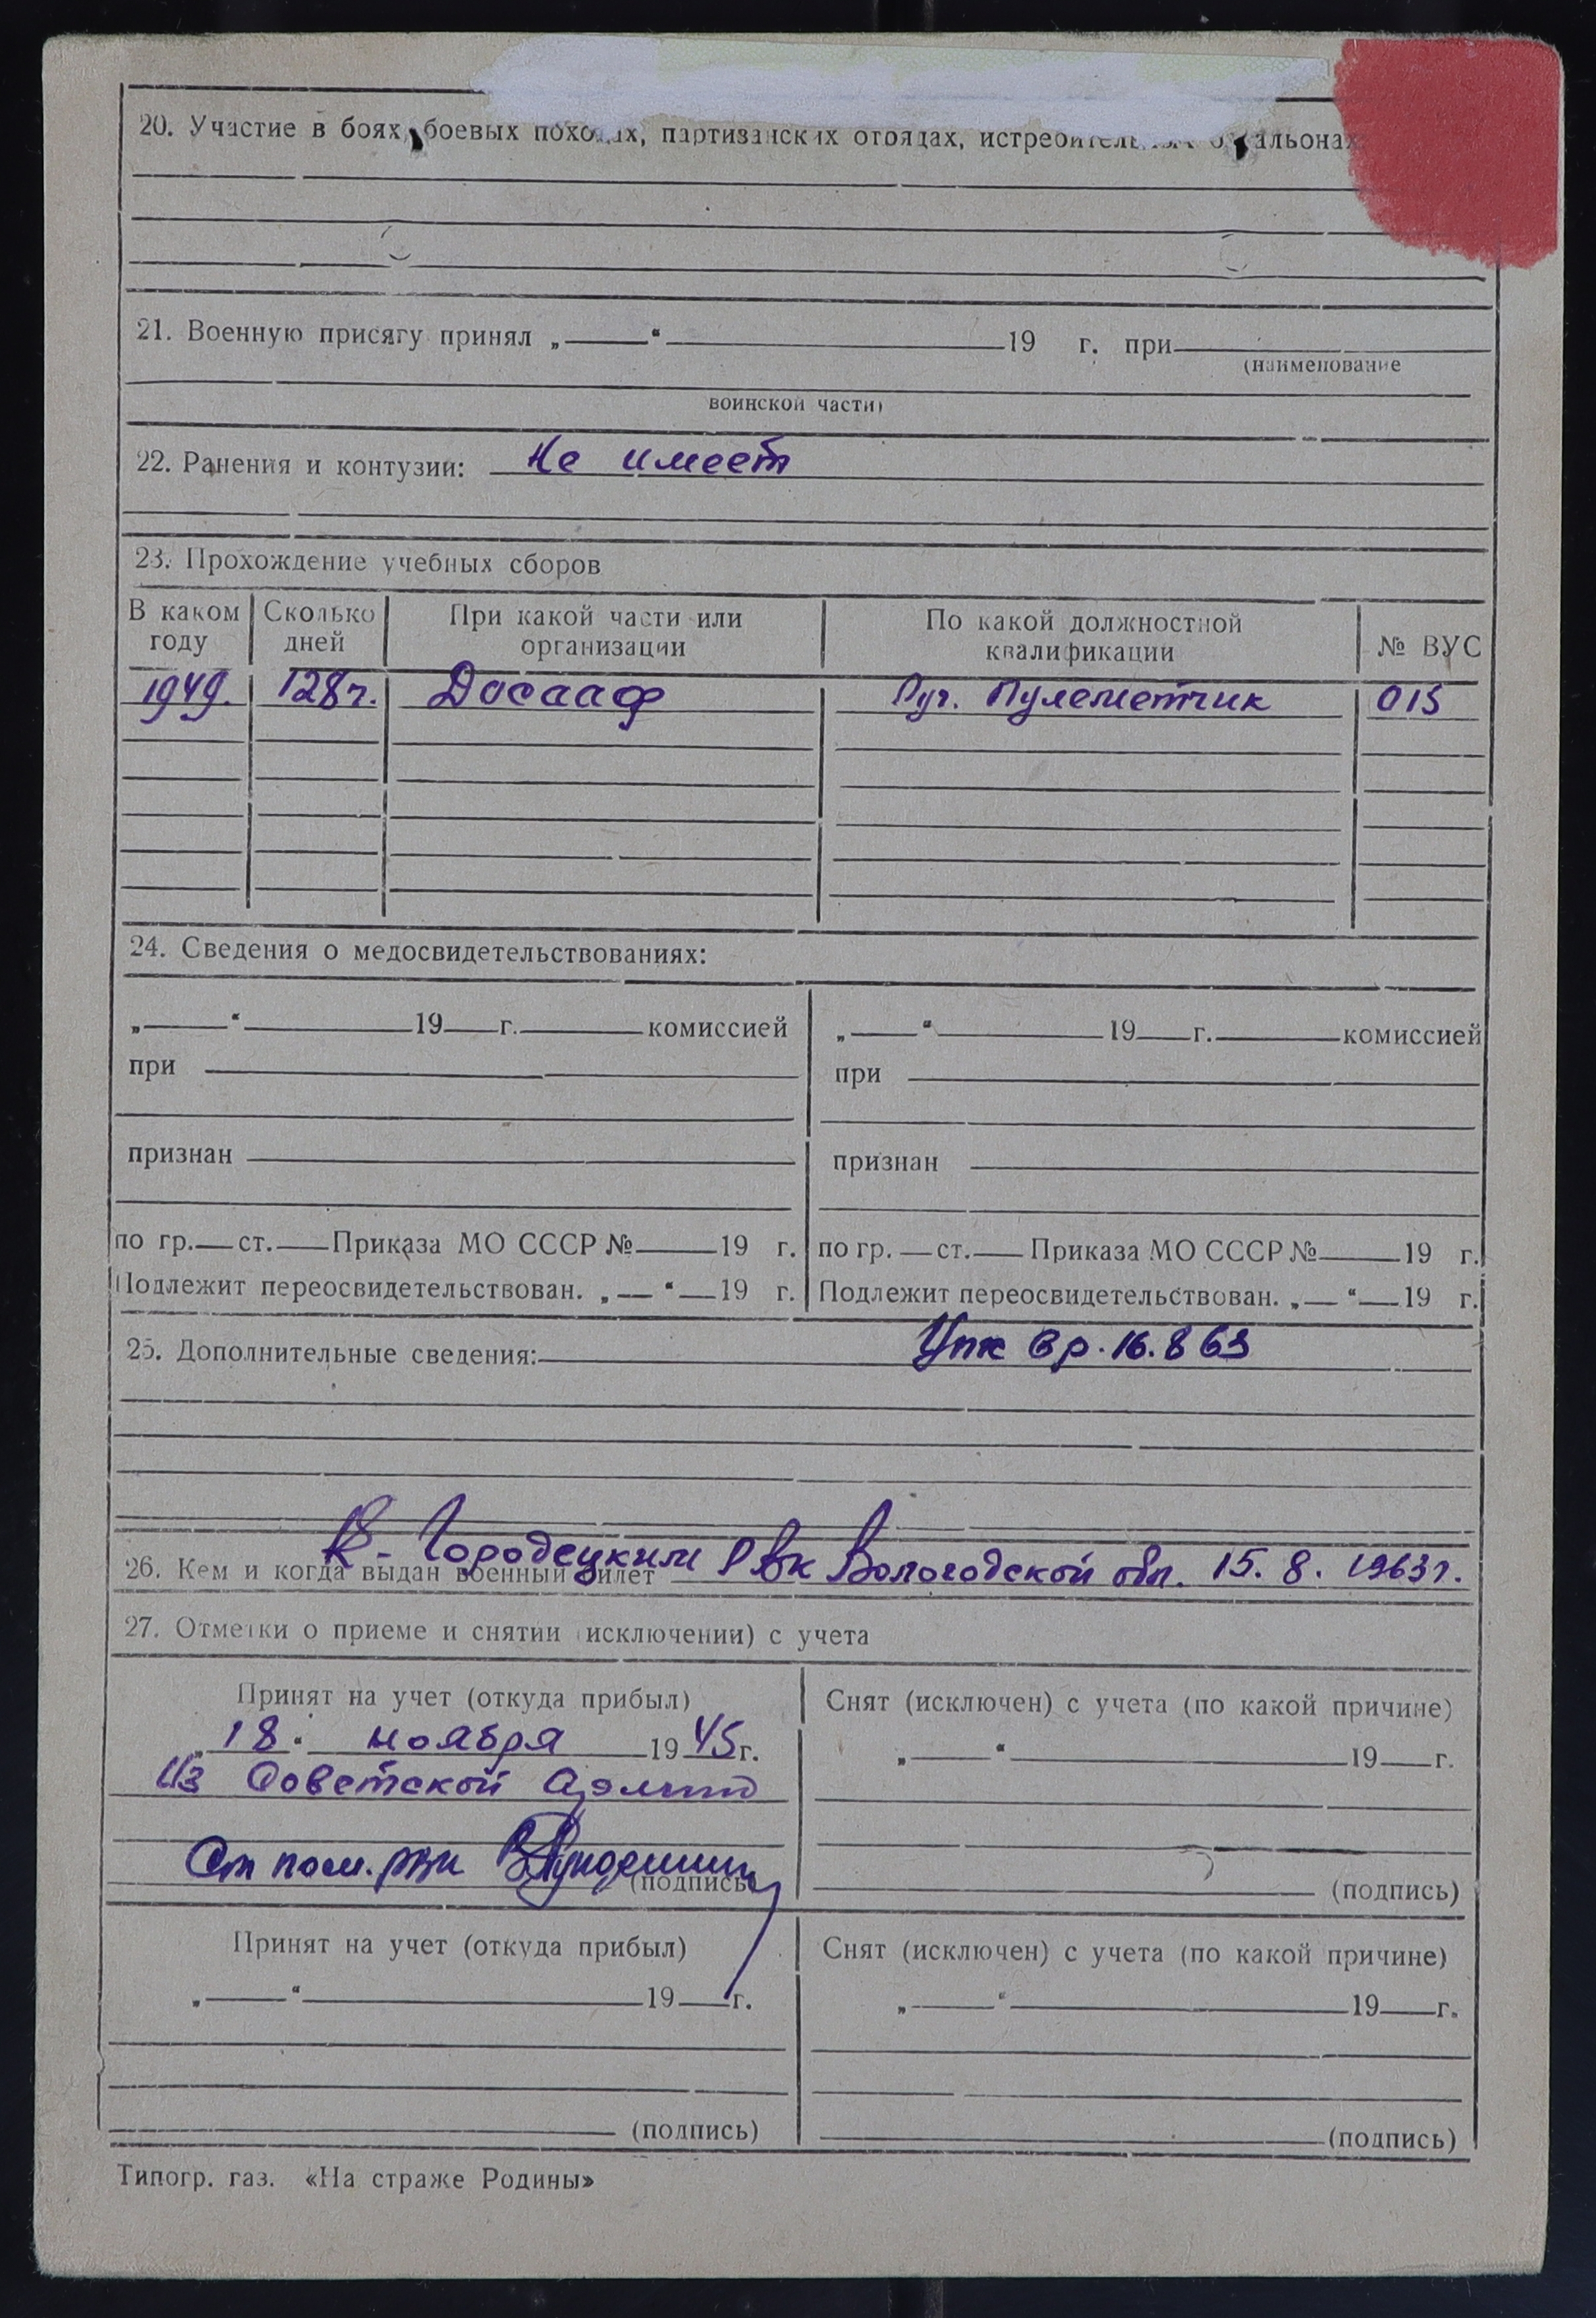 20. Участие в боях, боевых походах, партизанских отрядах, истребительных батальонах
21. Военную присягу принял „ “ 19 г. при
(наименование
воинской части)
22. Ранения и контузии: Не имеет
23. Прохождение учебных сборов
В каком году Сколько дней При какой части или организации По какой должностной квалификации № ВУС
1949. 128ч. Досааф Руч. Пулеметчик 015
24. Сведения о медосвидетельствованиях:
„ “ 19 г. комиссией „ “ 19 г. комиссией
при при
признан признан
по гр. ст. Приказа МО СССР № 19 г. по гр. ст. Приказа МО СССР № 19 г.
Подлежит переосвидетельствован. „ “ 19 г. Подлежит переосвидетельствован. „ “ 19 г.
25. Дополнительные сведения: 16.8 63
26. Кем и когда выдан военный билет К-Городецким Рвк Вологодской обл. 15. 8. 1963г.
27. Отметки о приеме и снятии (исключении) с учета
Принят на учет (откуда прибыл) Снят (исключен) с учета (по какой причине)
„18“ ноября 1945г. „ “ 19 г.
Из Советской Армии
Ст пом. рвк
(подпись) (подпись)
Принят на учет (откуда прибыл) Снят (исключен) с учета (по какой причине)
„ “ 19 г. „ “ 19 г.
(подпись) (подпись)
Типогр. газ. «На страже Родины»